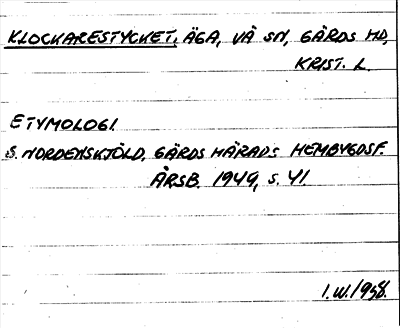 KLOCKARESTYCKET, ÄGA, VÄ SN, GÄRDS HD,
KRIST. L.
ETYMOLOGI.
S. NORDENSKJÖLD, GÄRDS HÄRADS HEMBYGDSF.
ÅRSB. 1949, S. 41.
I.W. 1958.